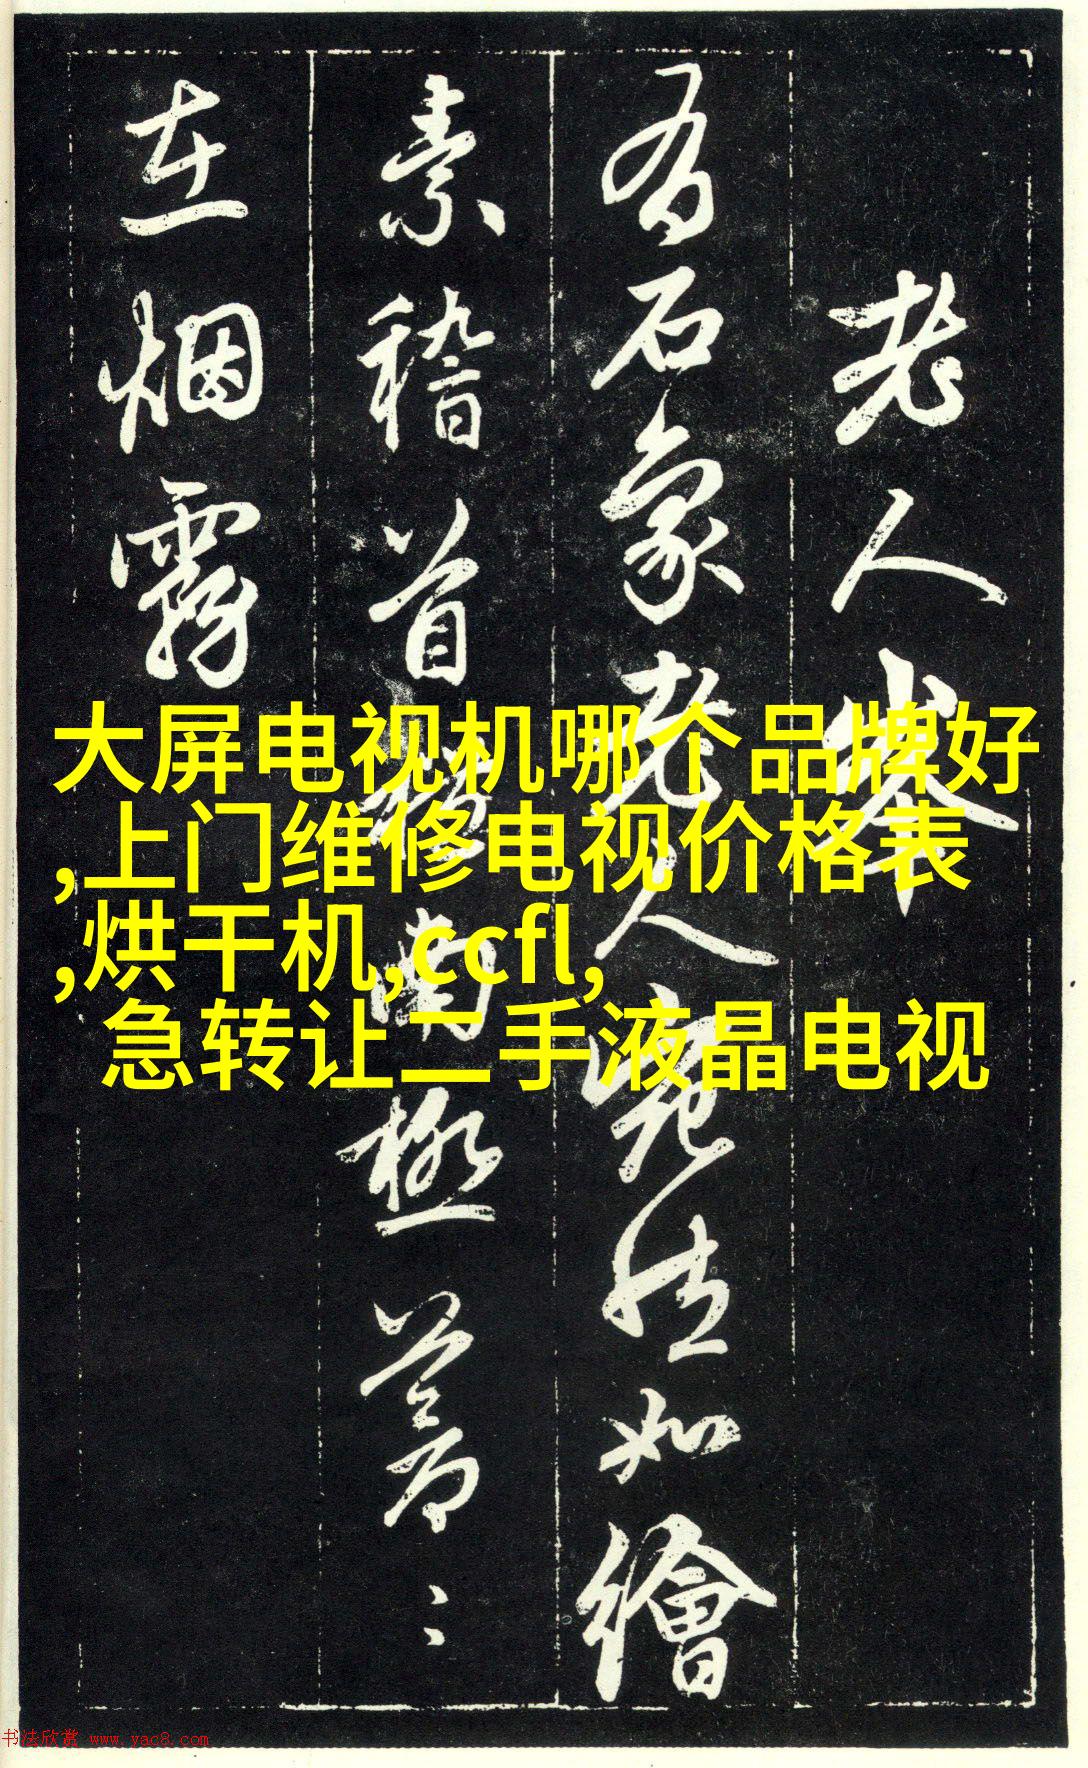 老人峯
有石象老人宛然如繪
素稽首
南極蒼蒼
在烟霧
大屏电视机哪个品牌好
,上门维修电视价格表
,烘干机,ccfl,
急转让二手液晶电视
书法欣赏 www.yac8.com